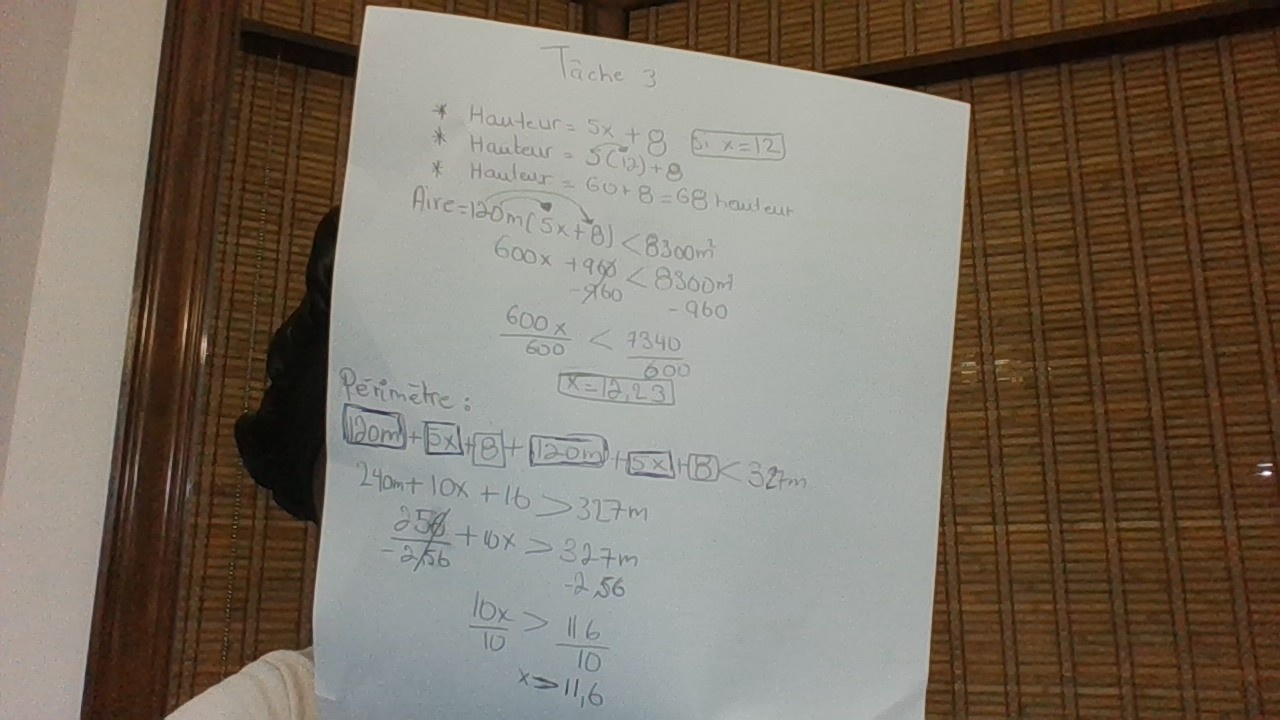 Tâche 3
* Hauteur = 5x + 8 Si x = 12
* Hauteur = 5(12) + 8
* Hauteur = 60 + 8 = 68 hauteur
Aire = 120m(5x + 8) < 8300m²
600x + 960 < 8300m²
-960 -960
600x < 7340
600 600
x = 12,23
Périmètre :
120m + 5x + 8 + 120m + 5x + 8 < 327m
240m + 10x + 16 > 327m
256 + 10x > 327m
-256 -2,56
10x > 116
10 10
x > 11,6